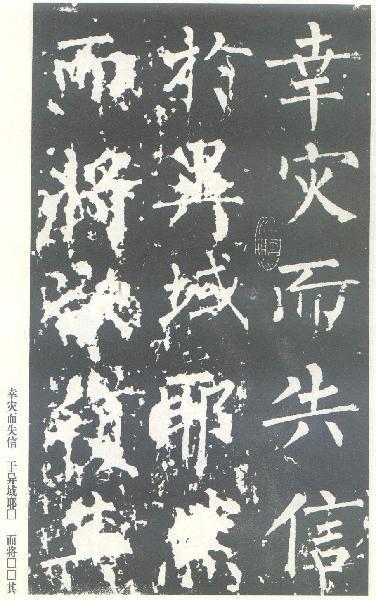 幸灾而失信
於異域耶
而將
幸灾而失信 于异域耶□ 而将□□其